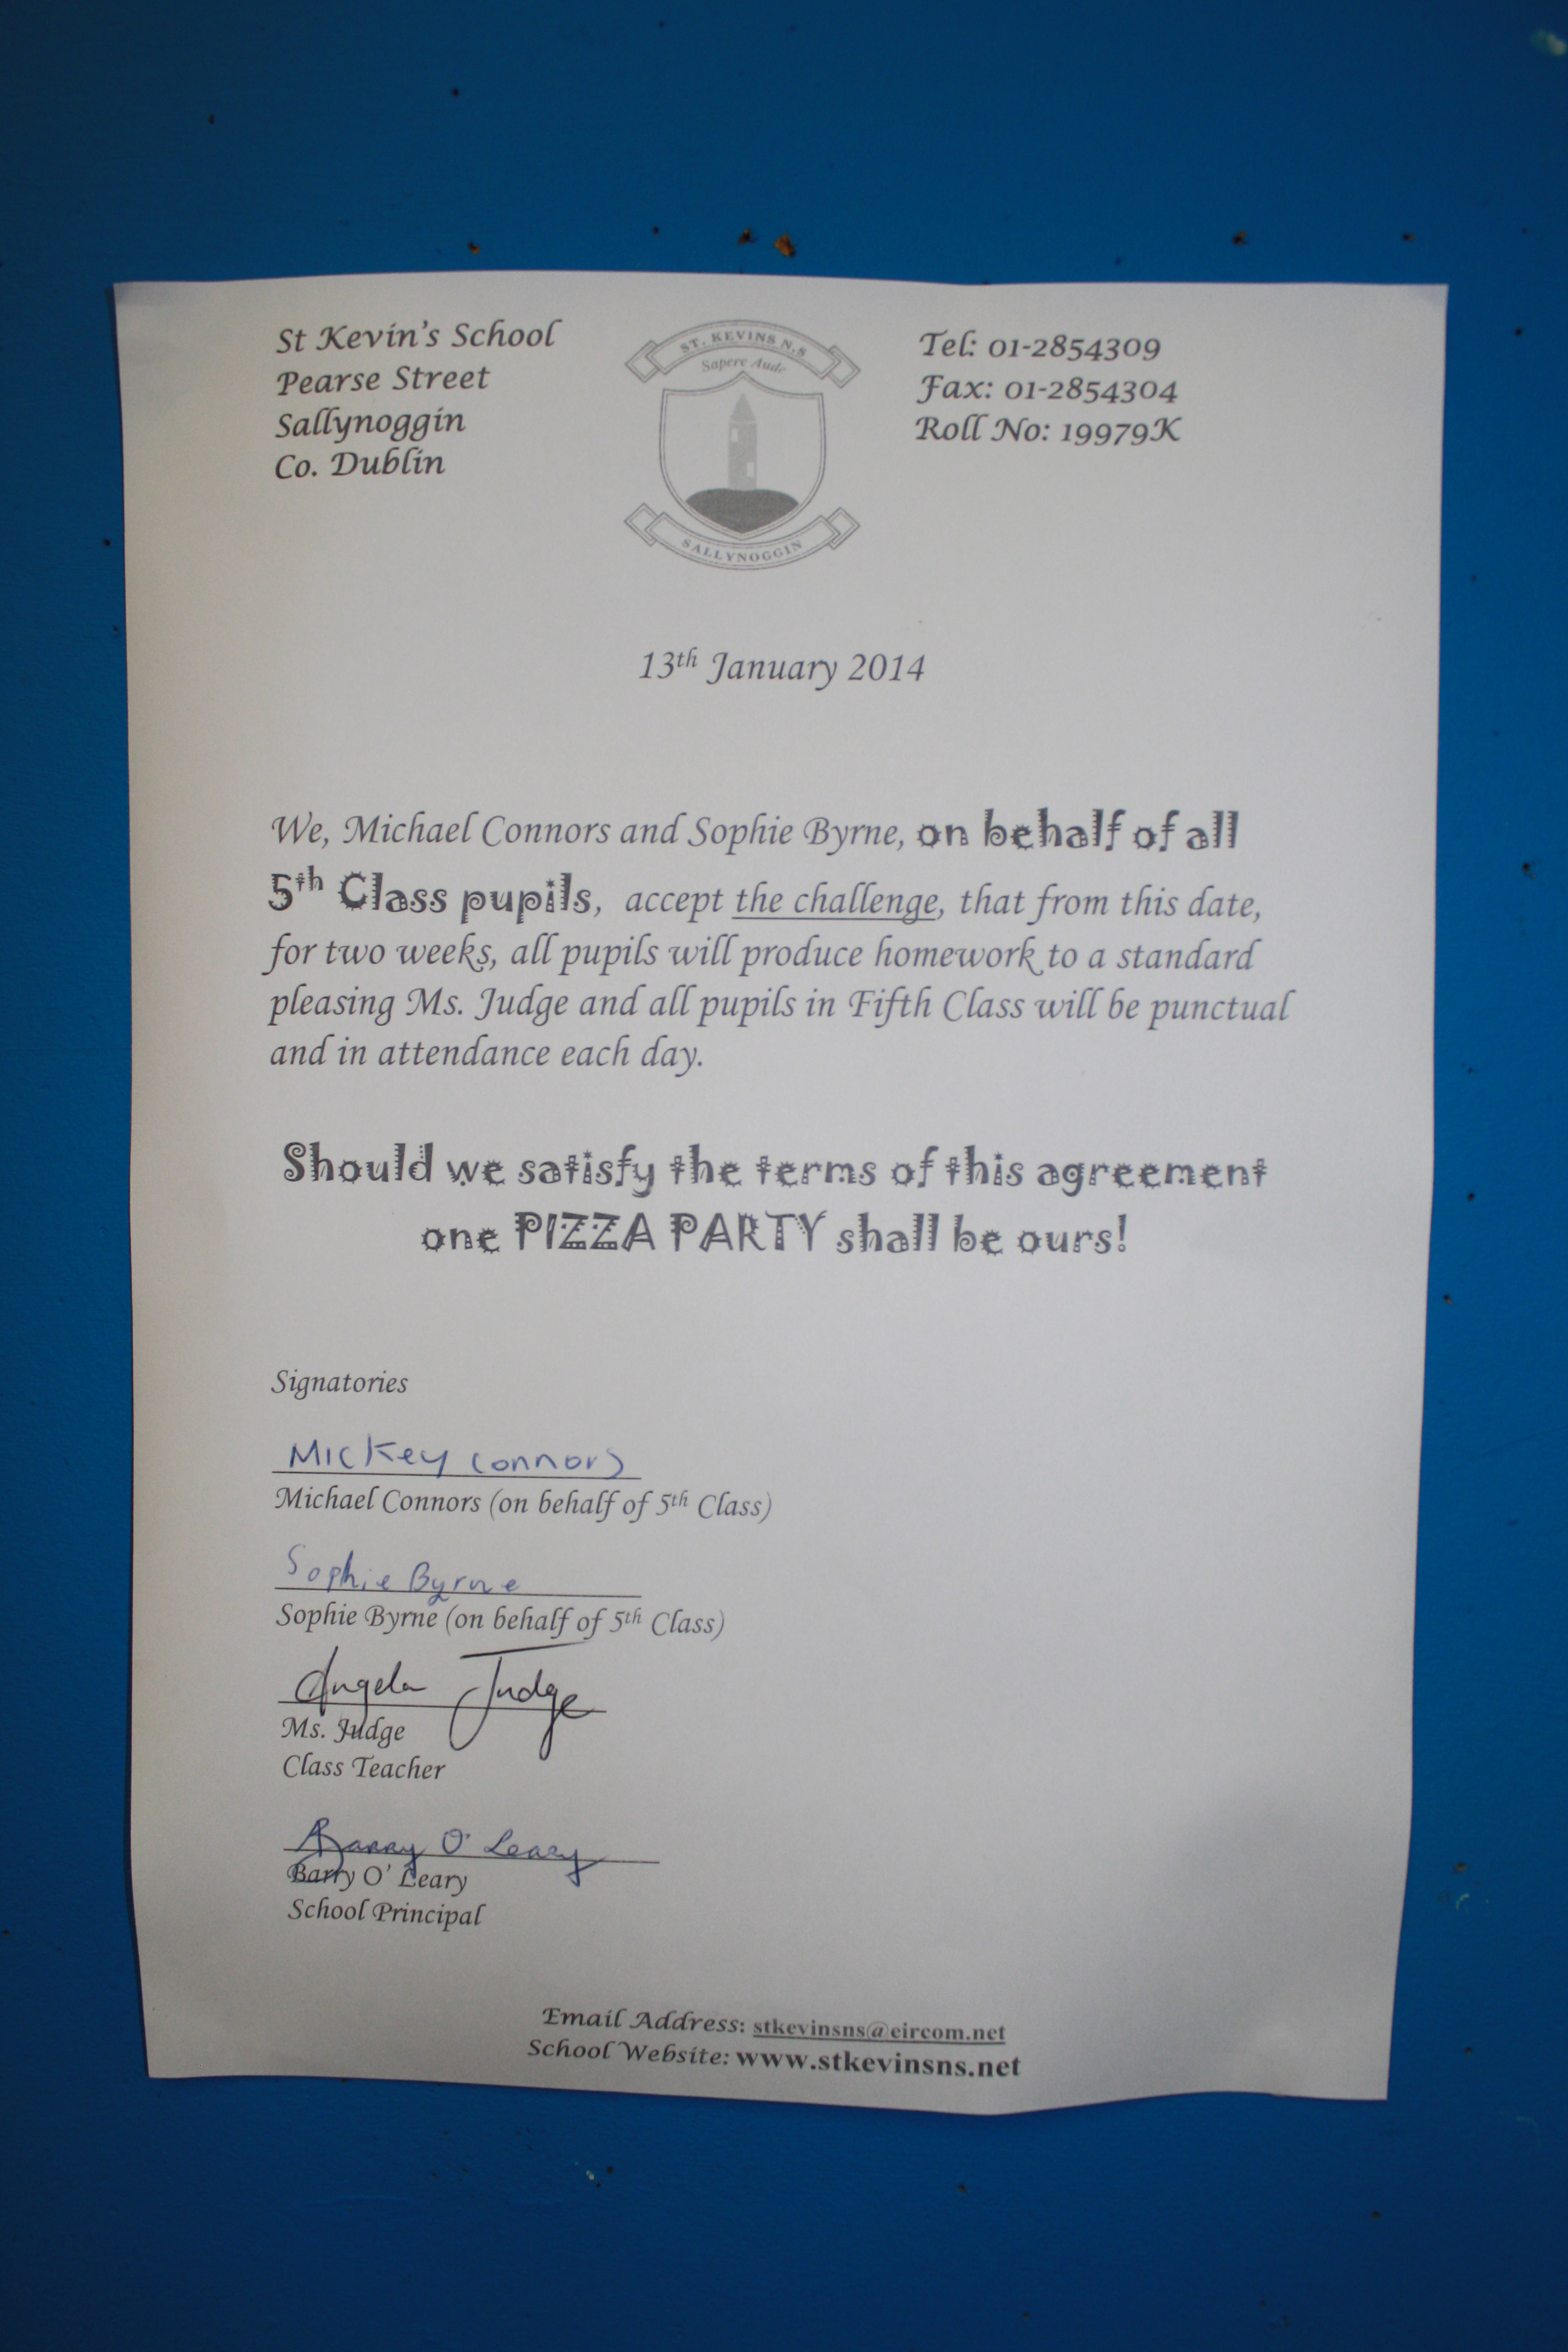 St Kevin's School
Pearse Street
Sallynoggin
Co. Dublin
ST. KEVINS N.S
Sapere Aude
SALLYNOGGIN
Tel: 01-2854309
Fax: 01-2854304
Roll No: 19979K
13th January 2014
We, Michael Connors and Sophie Byrne, on behalf of all
5th Class pupils, accept the challenge, that from this date,
for two weeks, all pupils will produce homework to a standard
pleasing Ms. Judge and all pupils in Fifth Class will be punctual
and in attendance each day.
Should we satisfy the terms of this agreement
one PIZZA PARTY shall be ours!
Signatories
Mickey Connors
Michael Connors (on behalf of 5th Class)
Sophie Byrne
Sophie Byrne (on behalf of 5th Class)
Angela Judge
Ms. Judge
Class Teacher
Barry O' Leary
Barry O' Leary
School Principal
Email Address: stkevinsns@eircom.net
School Website: www.stkevinsns.net